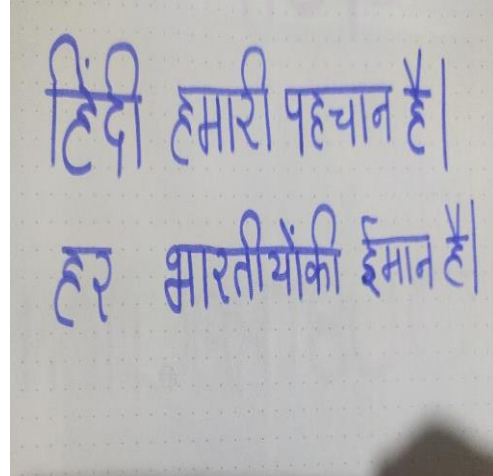 हिंदी हमारी पहचान है।
हर भारतीयोंकी ईमान है।